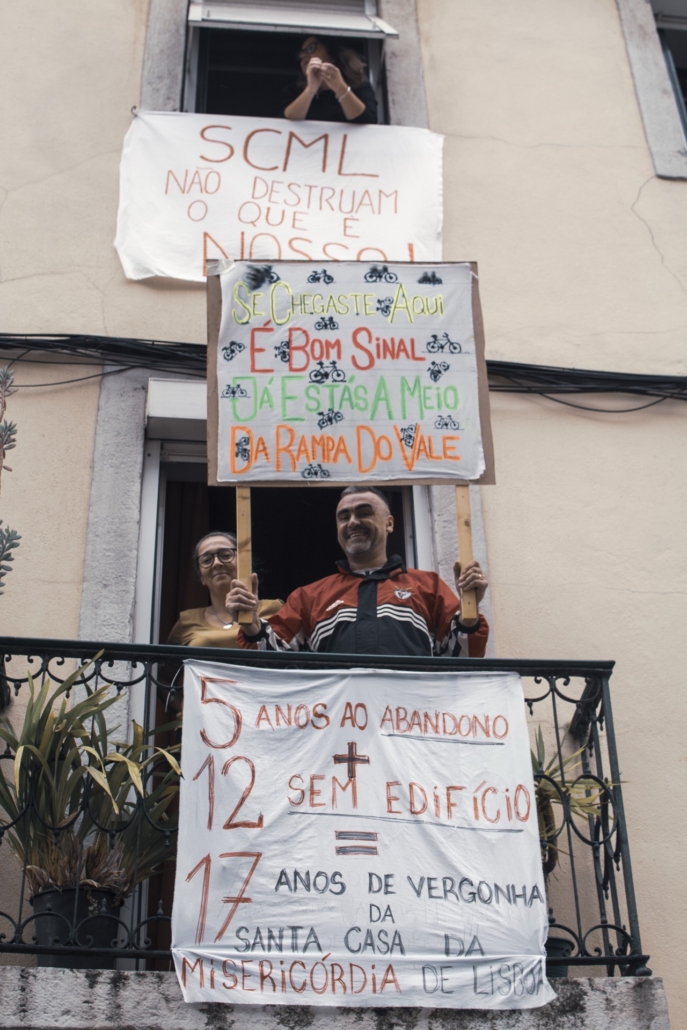 SCML
NÃO DESTRUAM
O QUE É
NOSSO!
SE CHEGASTE AQUI
É BOM SINAL
JÁ ESTÁS A MEIO
DA RAMPA DO VALE
5 ANOS AO ABANDONO
+
12 SEM EDIFÍCIO
=
17 ANOS DE VERGONHA
DA
SANTA CASA DA
MISERICÓRDIA DE LISBOA